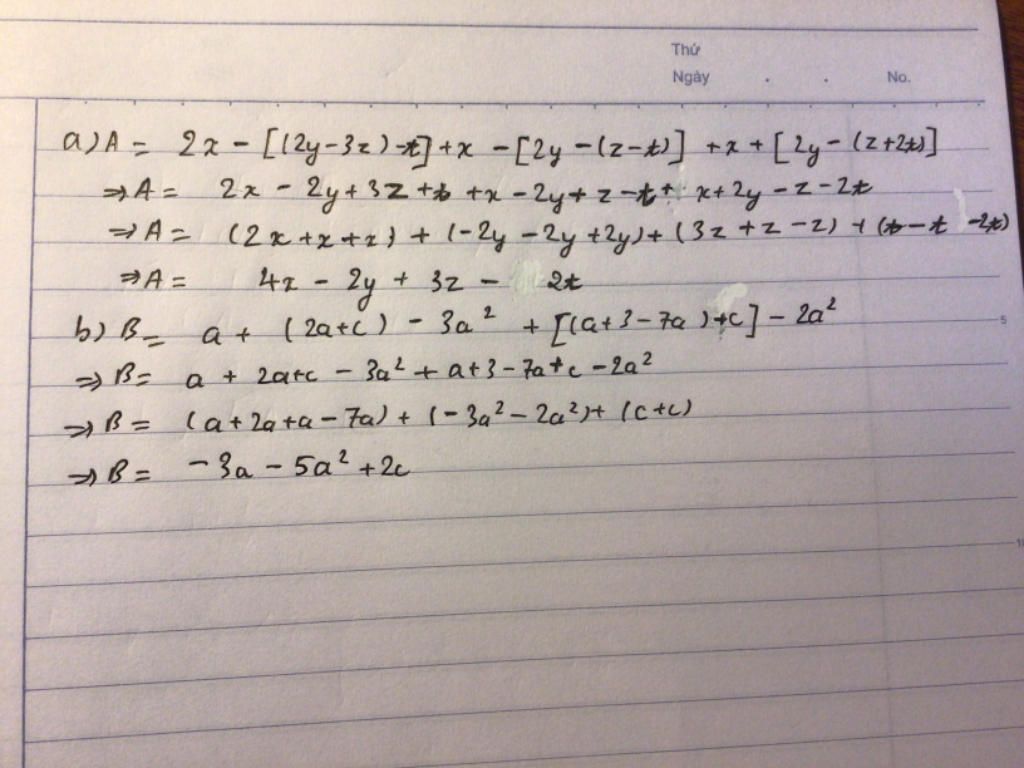 Thứ
Ngày . . No.
a) A = 2x - [(2y-3z)-t]+x - [2y-(z-t)] +x+[2y-(z+2t)]
⇒ A = 2x - 2y+3z+t +x-2y+z-t+ x+2y-z-2t
⇒ A = (2x+x+x) + (-2y-2y+2y)+(3z+z-z) + (t-t -2t)
⇒ A = 4x - 2y + 3z - 2t
b) B = a + (2a+c) - 3a² + [(a+3-7a)+c] - 2a²
5
⇒ B = a + 2a+c - 3a² + a+3-7a+c-2a²
⇒ B = (a+2a+a-7a) + (-3a²-2a²)+ (c+c)
⇒ B = -3a - 5a² +2c